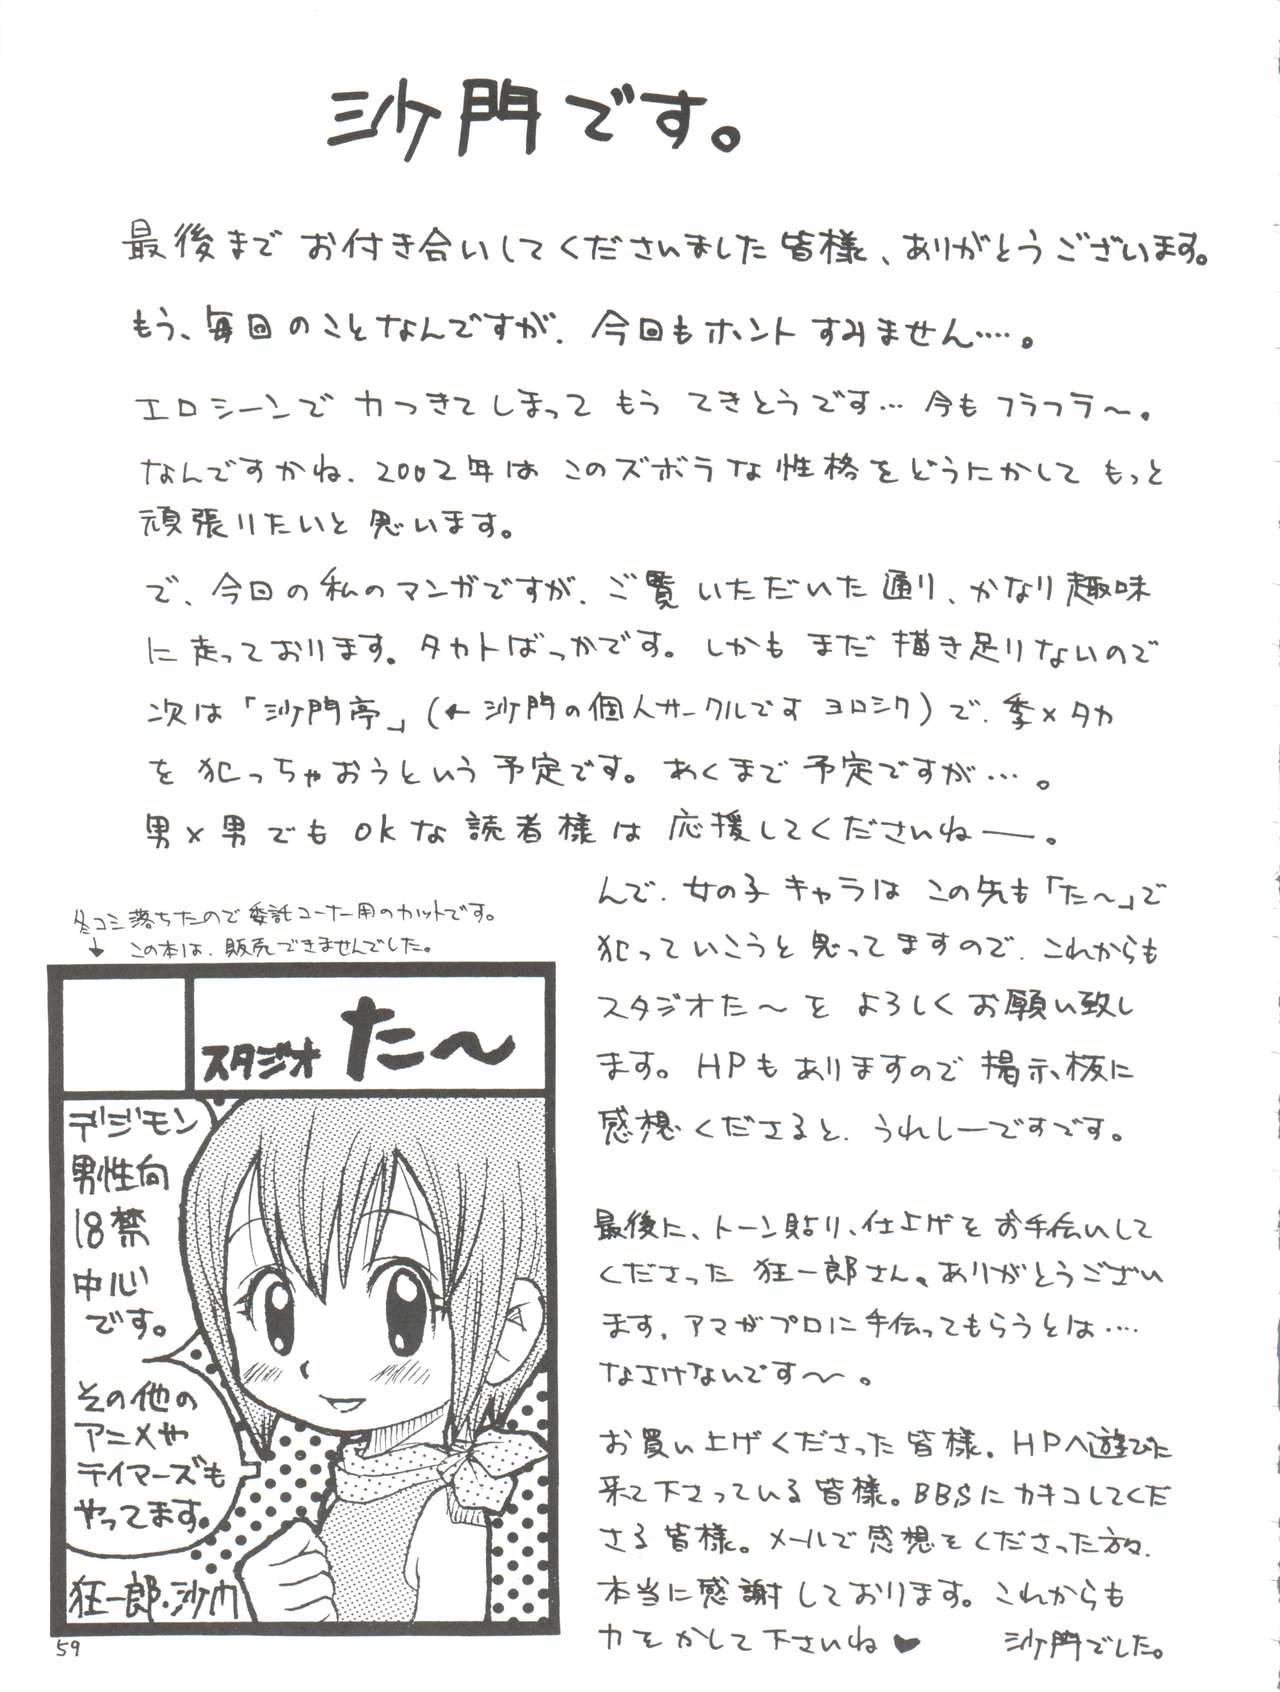 沙門です。
最後まで お付き合いしてくださいました皆様、ありがとうございます。
もう、毎回のことなんですが、今回もホントすみません‥‥。
エロシーンで 力つきてしまって もう てきとうです… 今もフラフラ～。
なんですかね、2002年は このズボラな性格をどうにかして もっと
頑張りたいと思います。
で、今回の私のマンガですが、ご覧いただいた通り、かなり趣味
に走っております。タカトばっかです。しかもまだ描き足りないので
次は「沙門亭」(←沙門の個人サークルです ヨロシク)で、季×タカ
を犯っちゃおうという予定です。あくまで予定ですが…。
男×男でもokな読者様は応援してくださいねー。
んで、女の子キャラは この先も「た～」で
犯っていこうと思ってますので、これからも
スタジオた～を よろしくお願い致し
ます。HPもありますので掲示板に
感想くださると、うれしーですです。
最後に、トーン貼り、仕上げをお手伝いして
くださった 狂一郎さん。ありがとうござい
ます。アマがプロに手伝ってもらうとは‥‥
なさけないです～。
お買い上げくださった皆様。HPへ遊びに
来て下さっている皆様。BBSにカキコしてくだ
さる皆様。メールで感想をくださった方々、
本当に感謝しております。これからも
力をかして下さいね♥ 沙門でした。
冬コミ落ちたので委託コーナー用のカットです。
↓ この本は、販売できませんでした。
スタジオ た～
デジモン
男性向
18禁
中心
です。
その他の
アニメや
テイマーズも
やってます。
狂一郎・沙門
59